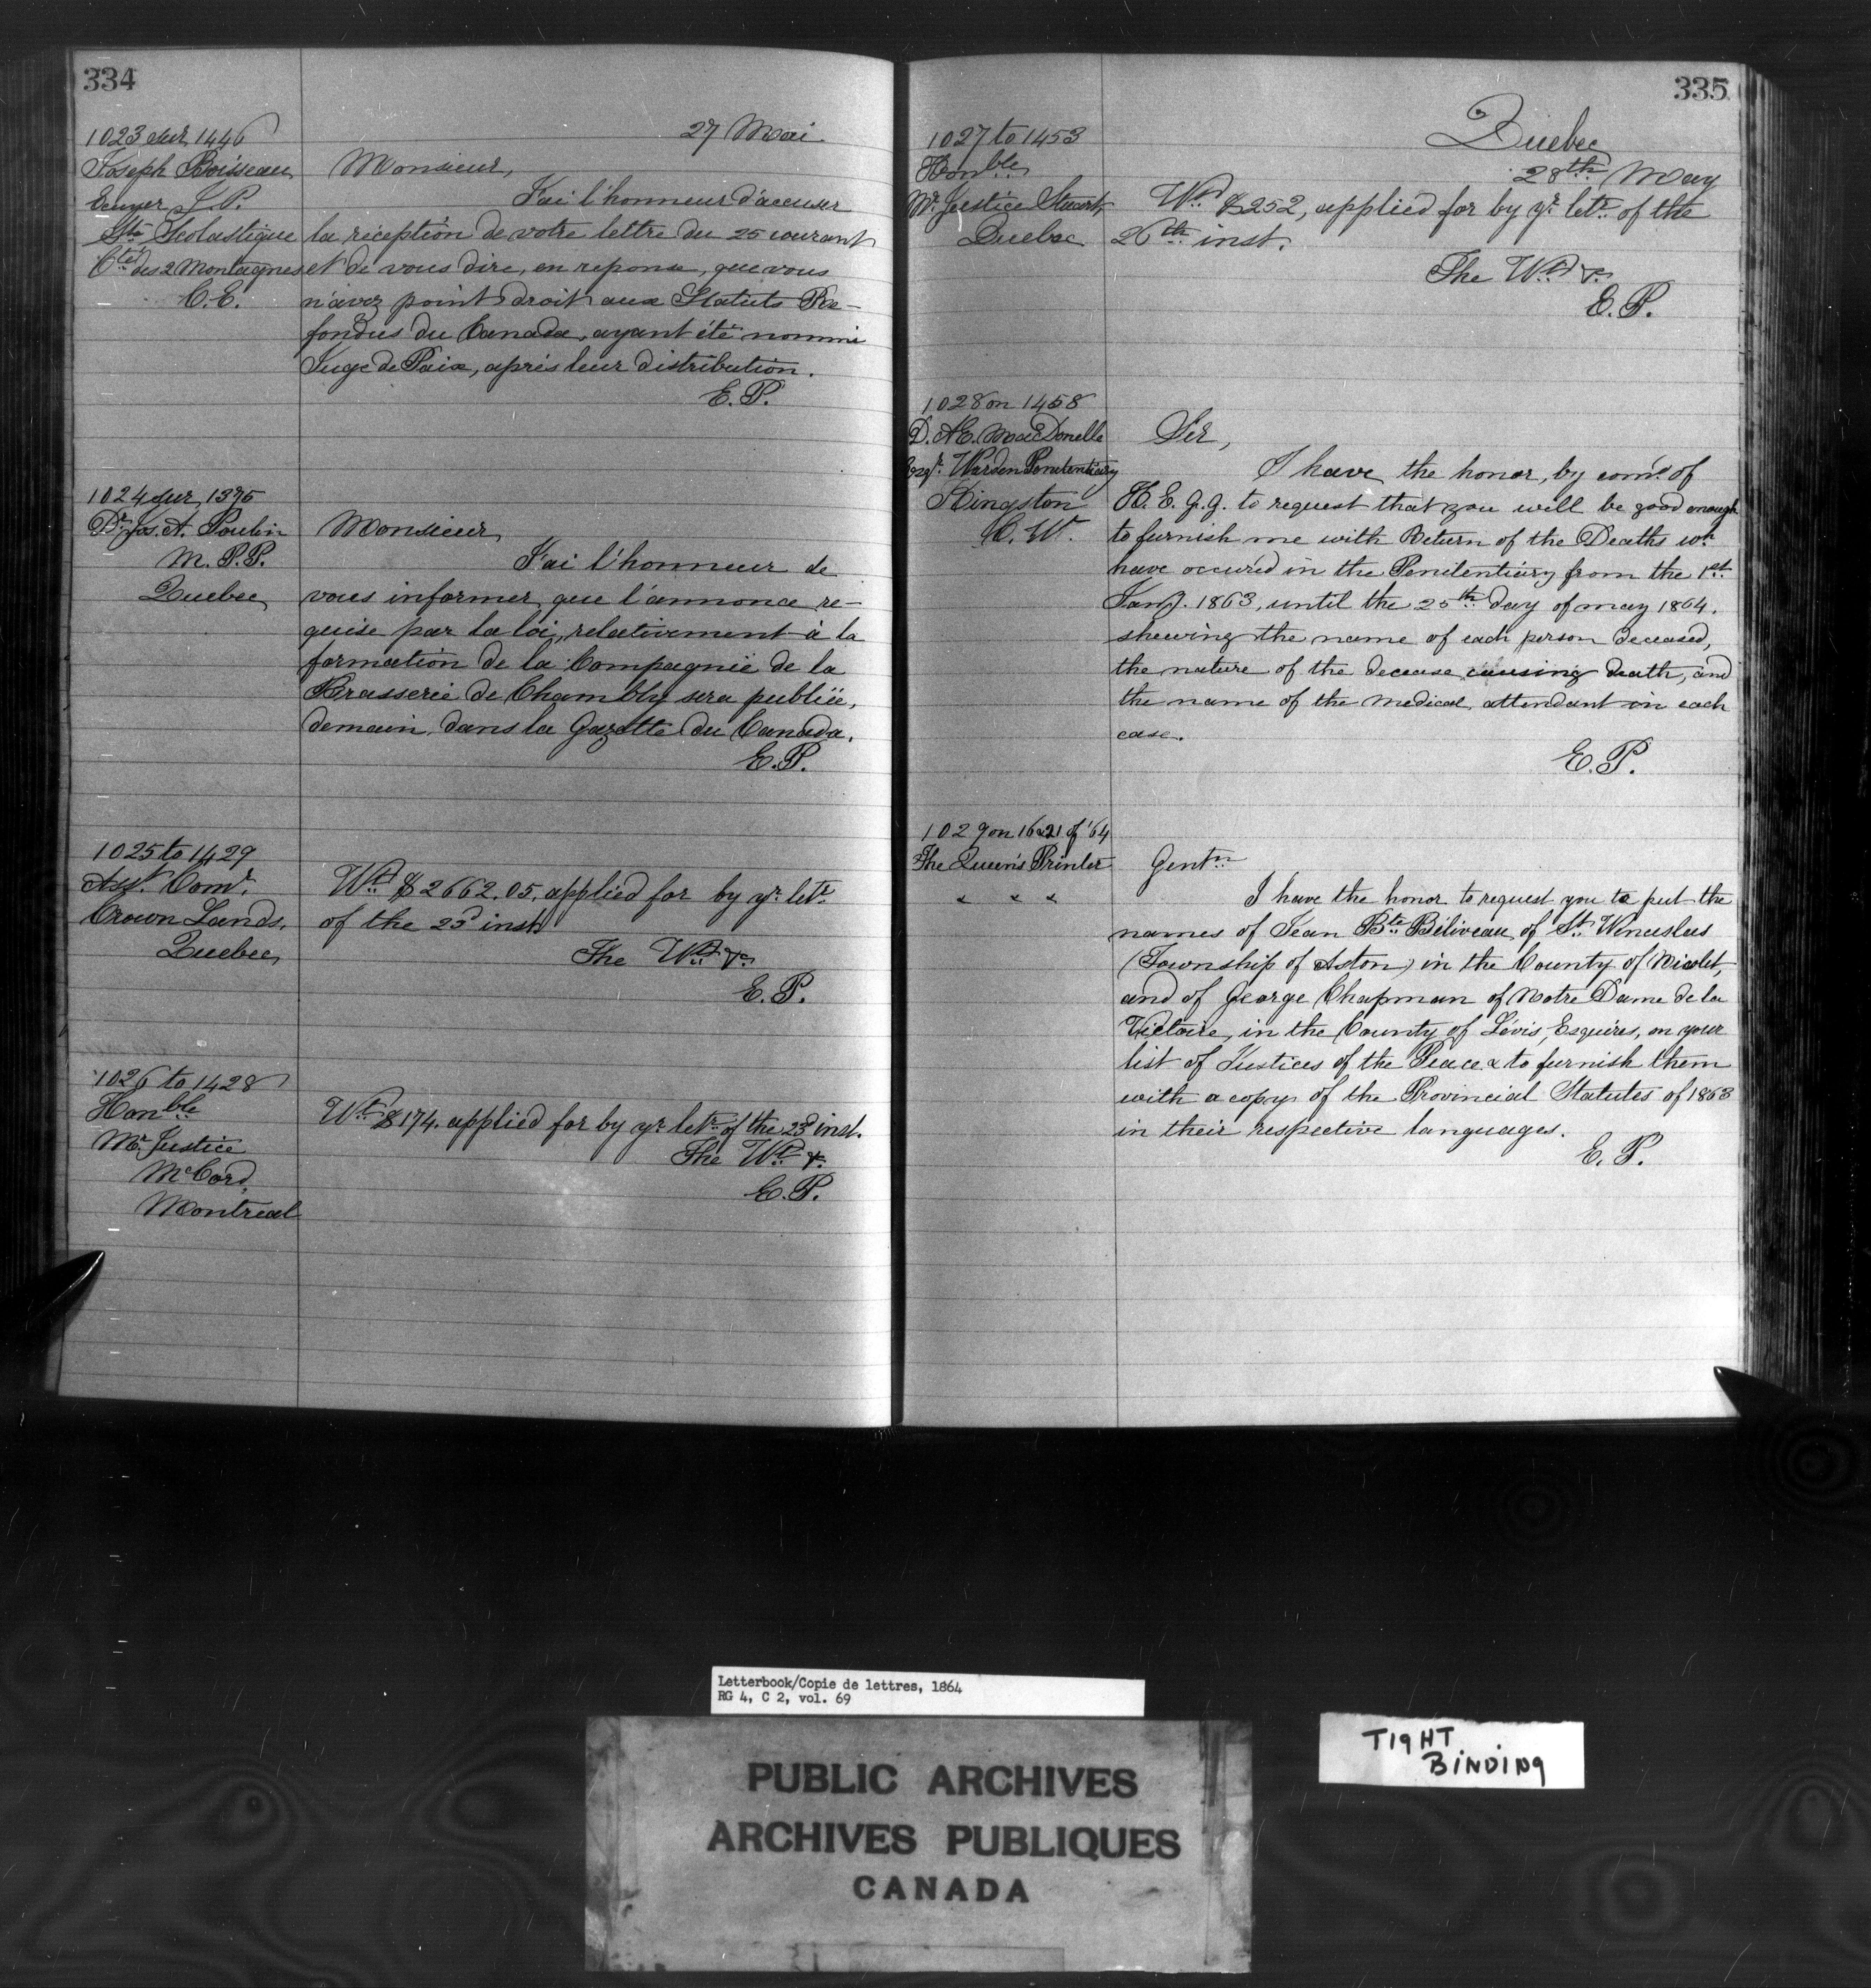 334
27 Mai
1023 sur 1446
Joseph Boisseau
Ecuyer J.P.
Ste Scolastique
Cté des 2 Montagnes
C.E.
Monsieur,
J'ai l'honneur d'accuser
la réception de votre lettre du 25 courant
et de vous dire, en reponse, que vous
n'avez point droit aux Statuts Re-
fondus du Canada, ayant été nommé
Juge de Paix, après leur distribution.
E.P.
1024 sur 1375
Dr Jos. A. Poulin
M.P.P.
Quebec
Monsieur
J'ai l'honneur de
vous informer que l'annonce re-
quise par la loi, relativement à la
formation de la Compagnie de la
Brasserie de Chambly sera publiée,
demain, dans la Gazette du Canada.
E.P.
1025 to 1429
Asst. Comr.
Crown Lands,
Quebec
Wt. $2662.05, applied for by yr letr.
of the 23d inst.
The Wt. &c
E.P.
1026 to 1428
Honble
Mr. Justice
McCord,
Montreal
Wt. $174. applied for by yr letr. of the 23d inst.
The Wt. &c.
E.P.
335
Quebec
28th May
1027 to 1453
Honble
Mr. Justice Stuart,
Quebec
Wt. $252, applied for by yr letr. of the
26th inst.
The Wt. &c.
E.P.
1028 on 1458
D. Æ. MacDonelle
Esqr. Warden Penitentiary
Kingston
C.W.
Sir,
I have the honor, by comd. of
H.E.G.G. to request that you will be good enough
to furnish me with Return of the Deaths wh
have occured in the Penitentiary from the 1st
Jany. 1863, until the 25th day of may 1864.
shewing the name of each person deceased,
the nature of the decease causing death, and
the name of the medical attendant in each
case.
E.P.
1029 on 16&21 of '64
The Queen's Printer
" " "
Gentn
I have the honor to request you to put the
names of Jean Bte Béliveau, of St. Wenceslus
(Township of Aston) in the County of Nicolet,
and of George Chapman of Notre Dame de la
Victoire, in the County of Lévis, Esquires, on your
list of Justices of the Peace & to furnish them
with a copy of the Provincial Statutes of 1863
in their respective languages.
E.P.
Letterbook/Copie de lettres, 1864
RG 4, C 2, vol. 69
PUBLIC ARCHIVES
ARCHIVES PUBLIQUES
CANADA
TIGHT
BINDING